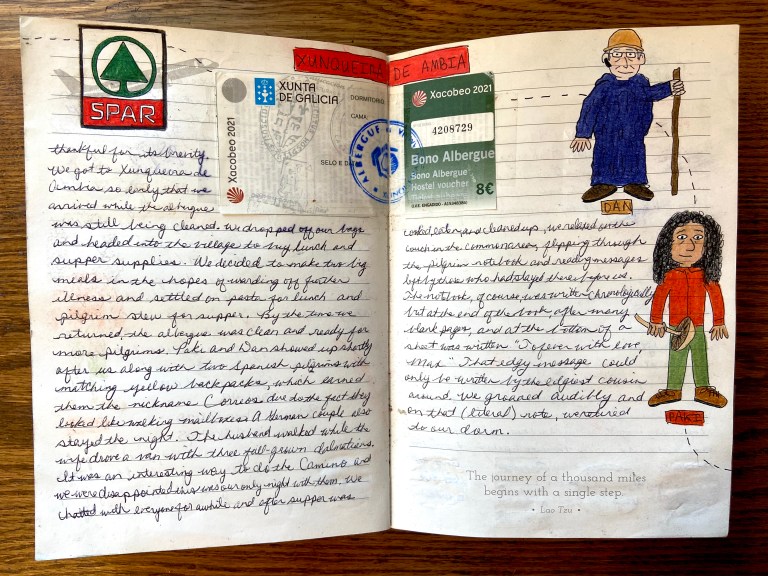 SPAR
XUNQUEIRA DE AMBIA
XUNTA
DE GALICIA
DORMITORIO
CAMA:
SELO E DATA
Xacobeo 2021
ALBERGUE
thankful for its brevity.
We got to Xunqueira de
Ambia so early that we
arrived while the albergue
was still being cleaned. We dropped off our bags
and headed into the village to buy lunch and
supper supplies. We decided to make two big
meals in the hopes of warding off further
illness and settled on pasta for lunch and
pilgrim stew for supper. By the time we
returned, the albergue was clean and ready for
more pilgrims. Paki and Dan showed up shortly
after us along with two Spanish pilgrims with
matching yellow backpacks, which earned
them the nickname Correos due to the fact they
looked like walking mailboxes. A German couple also
stayed the night. The husband walked while the
wife drove a van with three full-grown dalmations.
It was an interesting way to do the Camino and
we were disappointed this was our only night with them. We
chatted with everyone for awhile and after supper was
Xacobeo 2021
4208729
Bono Albergue
Bono Albergue
Hostel voucher
8€
DAN
cooked, eaten, and cleaned up, we relaxed on the
couch in the common area, flipping through
the pilgrim notebook and reading messages
left by those who had stayed there before us.
The notebook, of course, was written chronologically
but at the end of the book, after many
blank pages, and at the bottom of a
sheet was written "Forever with love
Max." That edgy message could
only be written by the edgiest cousin
around. We groaned audibly and
on that (literal) note, we retired
to our dorm.
PAKI
The journey of a thousand miles
begins with a single step.
• Lao Tzu •